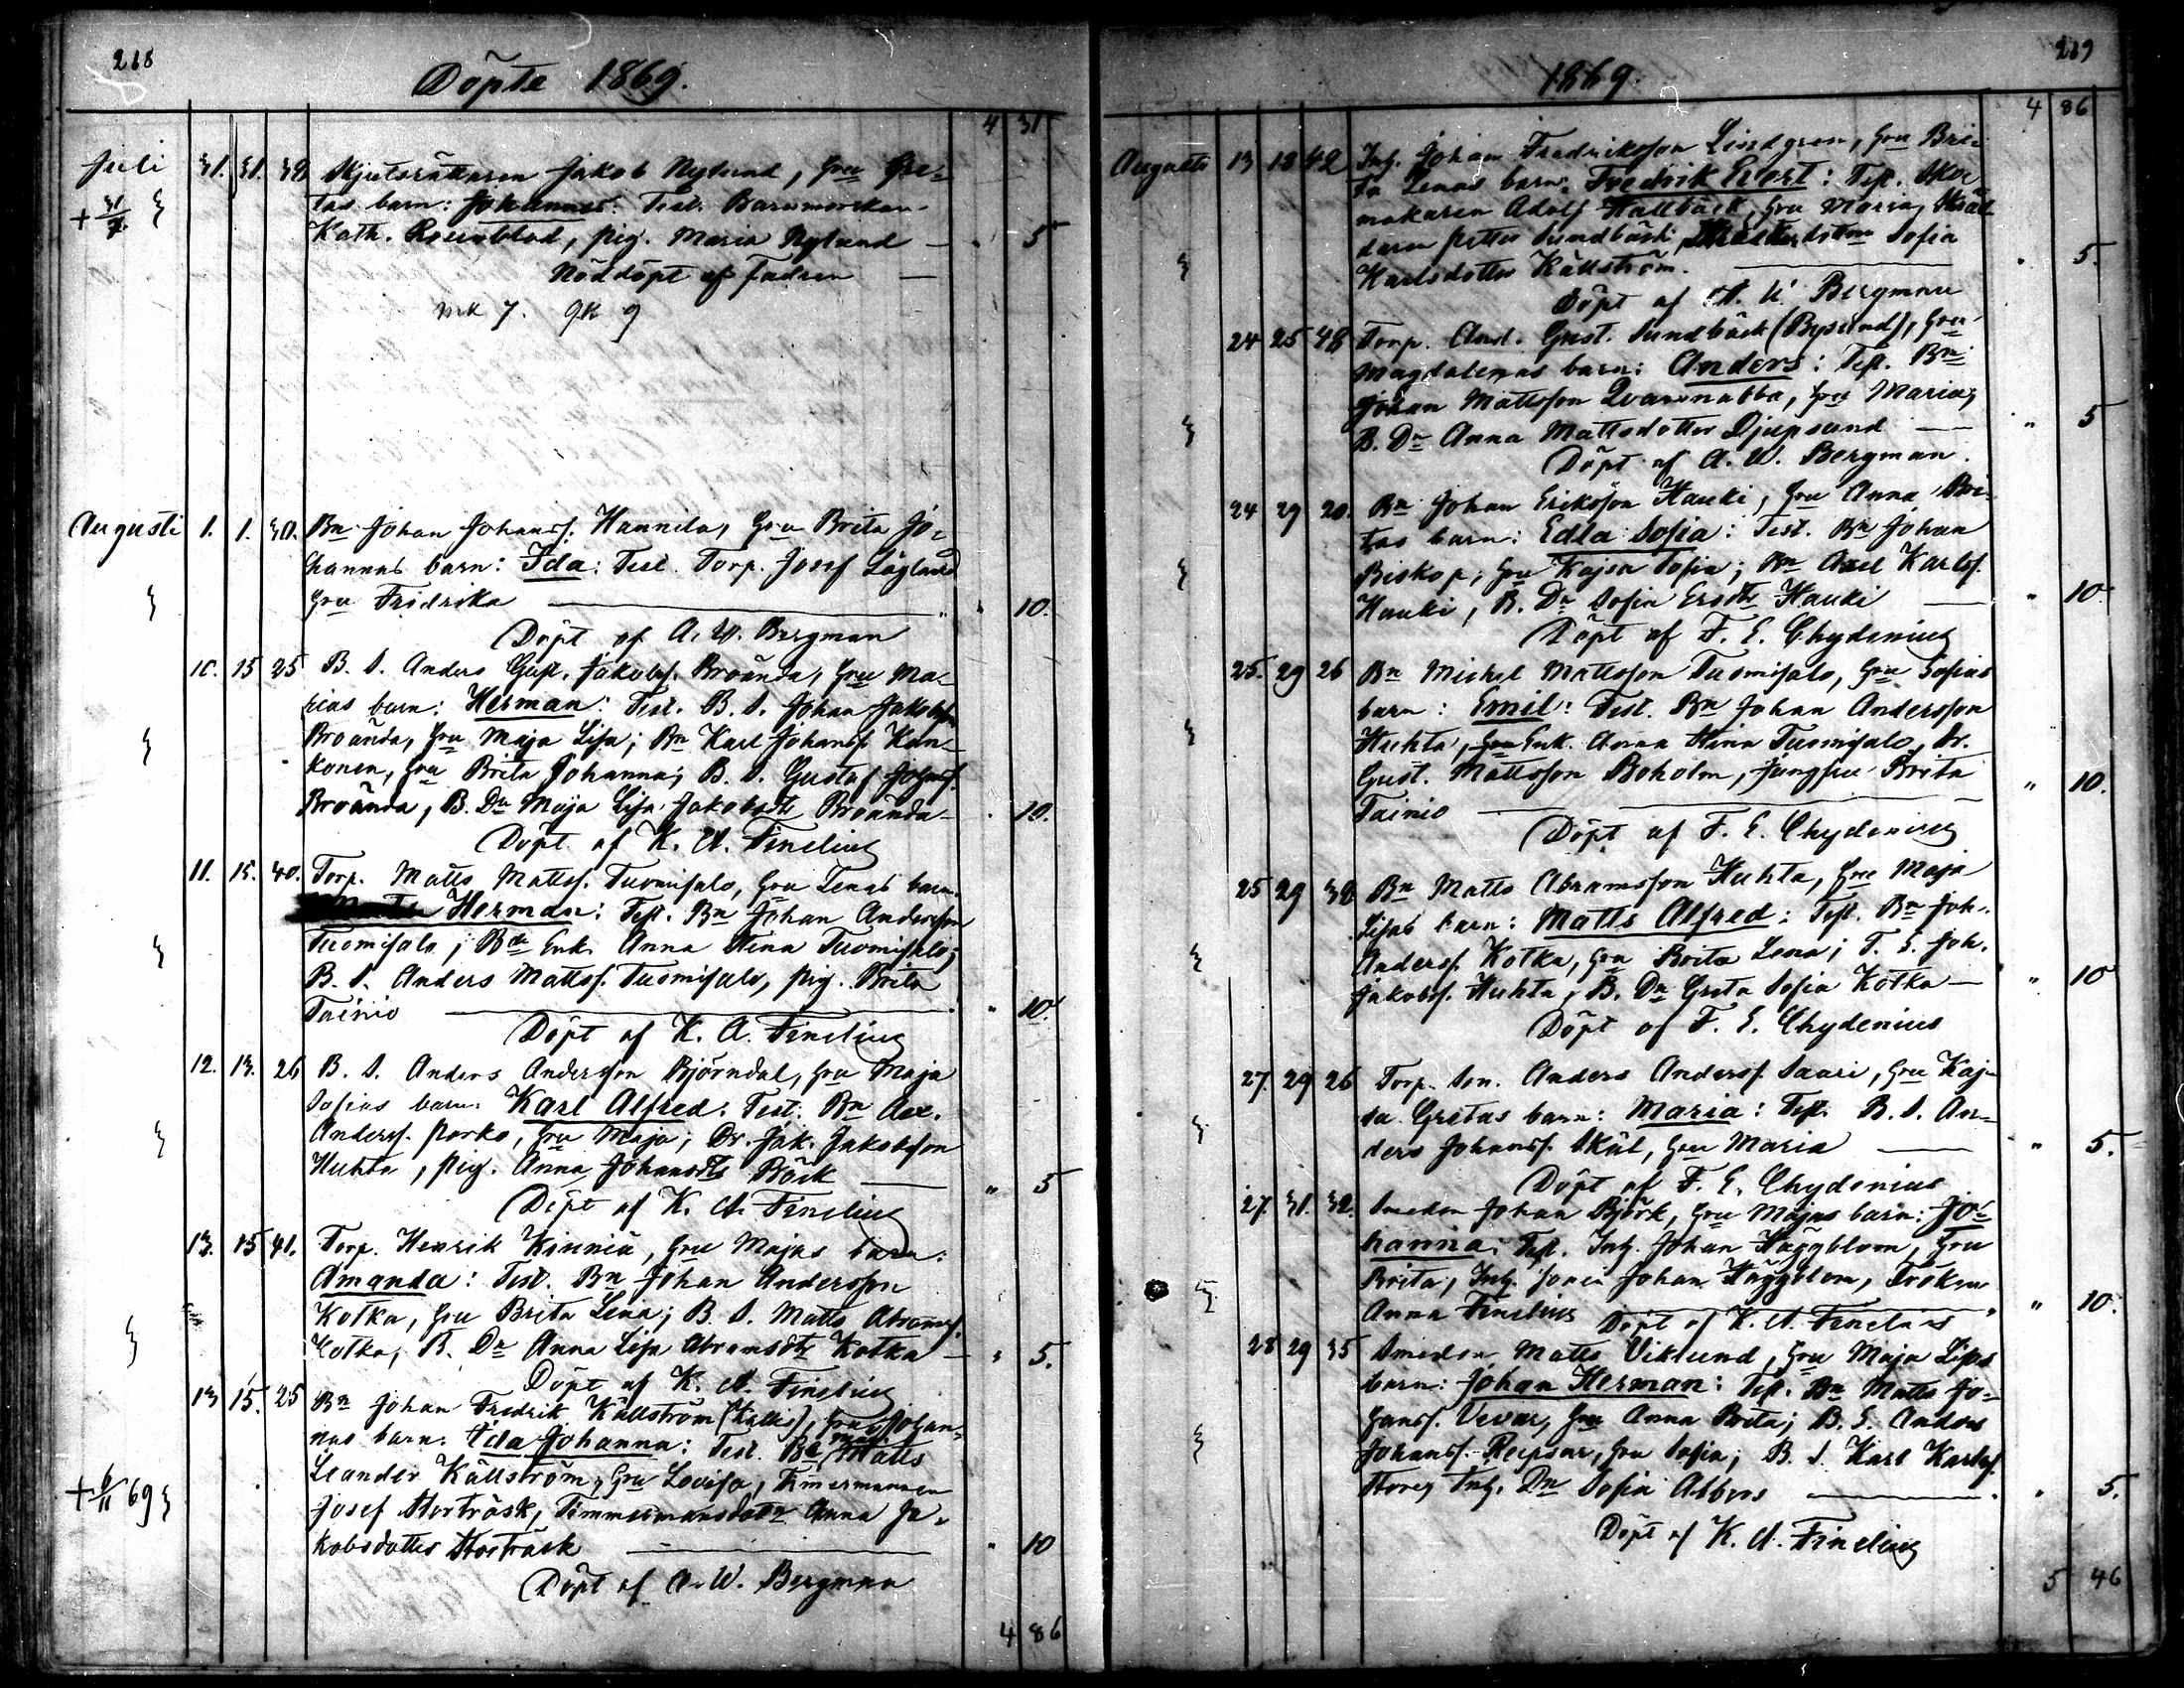 218
Döpte 1869.
4 31
Juli 31. 31. 39 Skjutsrättaren Jakob Nylund, hru Gre-
+ 31/7. tas barn: Johannes: Test. Barnmorskan
Kath. Rosenblad, pig. Maria Nylund — " 5
Nöddöpt af Fadren —
mk 7. qk 9
Augusti 1. 1. 30. Bn Johan Johanss. Hannila, hru Brita Jo-
hannas barn: Ida: Test. Torp. Josef Löglund
hru Fredrika — " 10.
Döpt af A. W. Bergman
10. 15 25 B. S. Anders Gust. Jakobss. Broända, hru Ma-
rias barn: Herman: Test. B. S. Johan Jakobsson
Broända, hru Maja Lisa; Bn Karl Johanss. Kan-
konen, hru Brita Johanna; B. S. Gustaf Johanss.
Broända, B. Dr Maja Lisa Jakobsdtr Broända — " 10.
Döpt af K. A. Finelius
11. 15. 40. Torp. Matts Mattss. Tuomisalo, hru Lenas barn.
Herman: Test. Bn Johan Andersson
Tuomisalo; Bde Enk. Anna Stina Tuomisalo;
B. S. Anders Mattss. Tuomisalo, pig. Brita
Tainio — " 10.
Döpt af K. A. Finelius
12. 13. 26 B. S. Anders Andersson Björndal, hru Maja
Sofias barn: Karl Alfred. Test. Bn Aex.
Anderss. Porko, hru Maja; Dr. Jak. Jakobsson
Huhta, pig. Anna Johansdtr Böck — " 5
Döpt af K. A. Finelius
13. 15 41. Torp. Henrik Kinniä, hru Majas barn:
Amanda: Test. Bn Johan Andersson
Kotka, hru Brita Lena; B. S. Matts Abramss.
Kotka, B. Dr Anna Lisa Abramsdtr Kotka — " 5.
Döpt af K. A. Finelius
13 15. 25 Bn Johan Fredrik Källström (Kallis), hru Johan-
nas barn: Ida Johanna: Test. Bn Matts
Leander Källström, hru Lovisa, Timermannen
+ 6/11 69 Josef Storträsk, Timmermansdotr Anna Ja-
kobsdotter Storträsk — " 10
Döpt af A. W. Bergman
4 86
219
1869.
4 86
Augusti 13 18 42 Inh. Johan Fredriksson Lindgren, hru Bri-
ta Lenas barn: Fredrik Evert: Test. Sko-
makaren Adolf Hallbäck, hru Maria, Skräd-
daren Petter Sundbäck, Sofia
Karlsdotter Källström. — " 5.
Döpt af A. W. Bergman
24 25 48 Torp. And. Gust. Sundbäck (Bysund), hru
Magdalenas barn: Anders: Test. Bn
Johan Mattsson Qvarnnabba, hru Maria;
B. Dr Anna Mattsdotter Djupsund — " 5
Döpt af A. W. Bergman.
24 29 20. Bn Johan Eriksson Hauki, hru Anna Bri-
tas barn: Edla Sofia: Test. Bn Johan
Biskop, hru Kajsa Sofia; Bn Axel Karlss.
Hauki, B. Dr Sofia Ersdtr Hauki — " 10
Döpt af F. E. Chydenius
25. 29 26 Bn Michel Mattsson Tuomisalo, hru Sofias
barn: Emil: Test. Bn Johan Andersson
Huhta, hru Enk. Anna Stina Tuomisalo, Dr.
Gust. Mattsson Boholm, Jungfru Brita
Tainio — " 10.
Döpt af F. E. Chydenius
25 29 32 Bn Matts Abramsson Huhta, hru Maja
Lisas barn: Matts Alfred: Test. Bn Joh.
Anderss. Kotka, hru Brita Lena; T. S. Joh.
Jakobss. Huhta, B. Dr Greta Sofia Kotka — " 10
Döpt af F. E. Chydenius
27. 29 26 Torp. Son. Anders Anderss. Saari, hru Kaj-
sa Gretas barn: Maria: Test. B. S. An-
ders Johanss. Skät, hru Maria — " 5.
Döpt af F. E. Chydenius
27. 31. 32. Smeden Johan Björk, hru Majas barn: Jo-
hanna: Test. Inh. Johan Häggblom, hru
Brita, Inh. Son Johan Häggblom, Fröken
Anna Finelius Döpt af K. A. Finelius " 10.
28 29 35 Smeden Matts Viklund, hru Maja Lisas
barn: Johan Herman: Test. Bn Matts Jo-
hanss. Vevar, hru Anna Brita; B. S. Anders
Johanss. Ripsar, hru Sofia; B. S. Karl Karlss.
Inh. Dr Sofia Abbors — " 5.
Döpt af K. A. Finelius
5 46